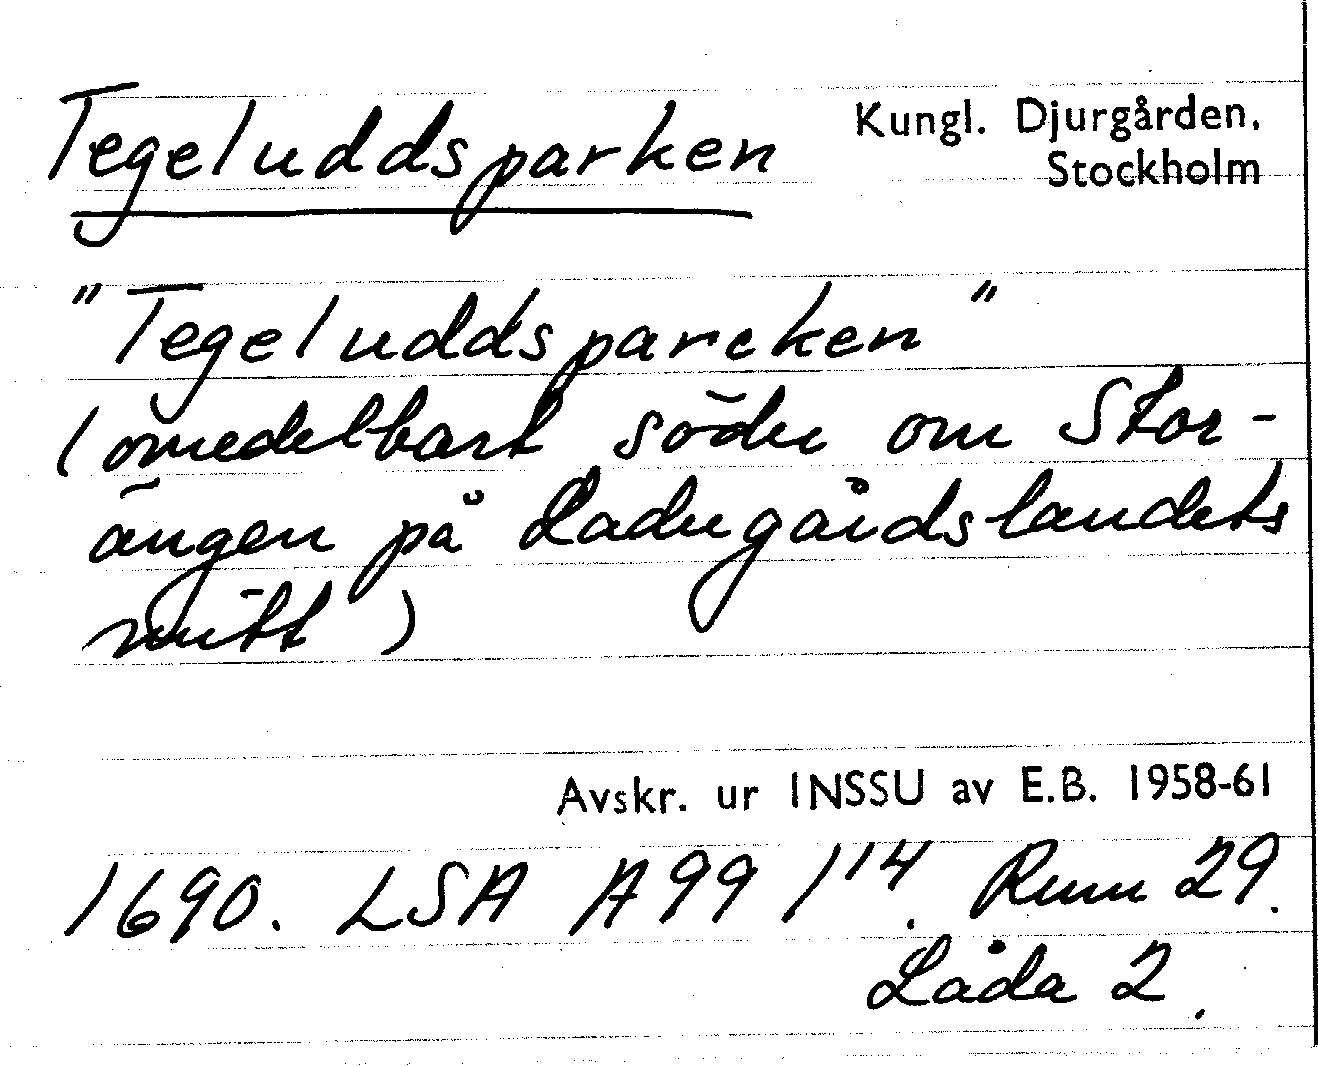 Tegeluddsparken Kungl. Djurgården.
Stockholm
"Tegeluddsparcken"
(omedelbart söder om Stor-
ängen på Ladugårdslandets
mitt)
Avskr. ur INSSU av E.B. 1958-61
1690. LSA A99 1¹⁴. Rum 29.
Låda 2.